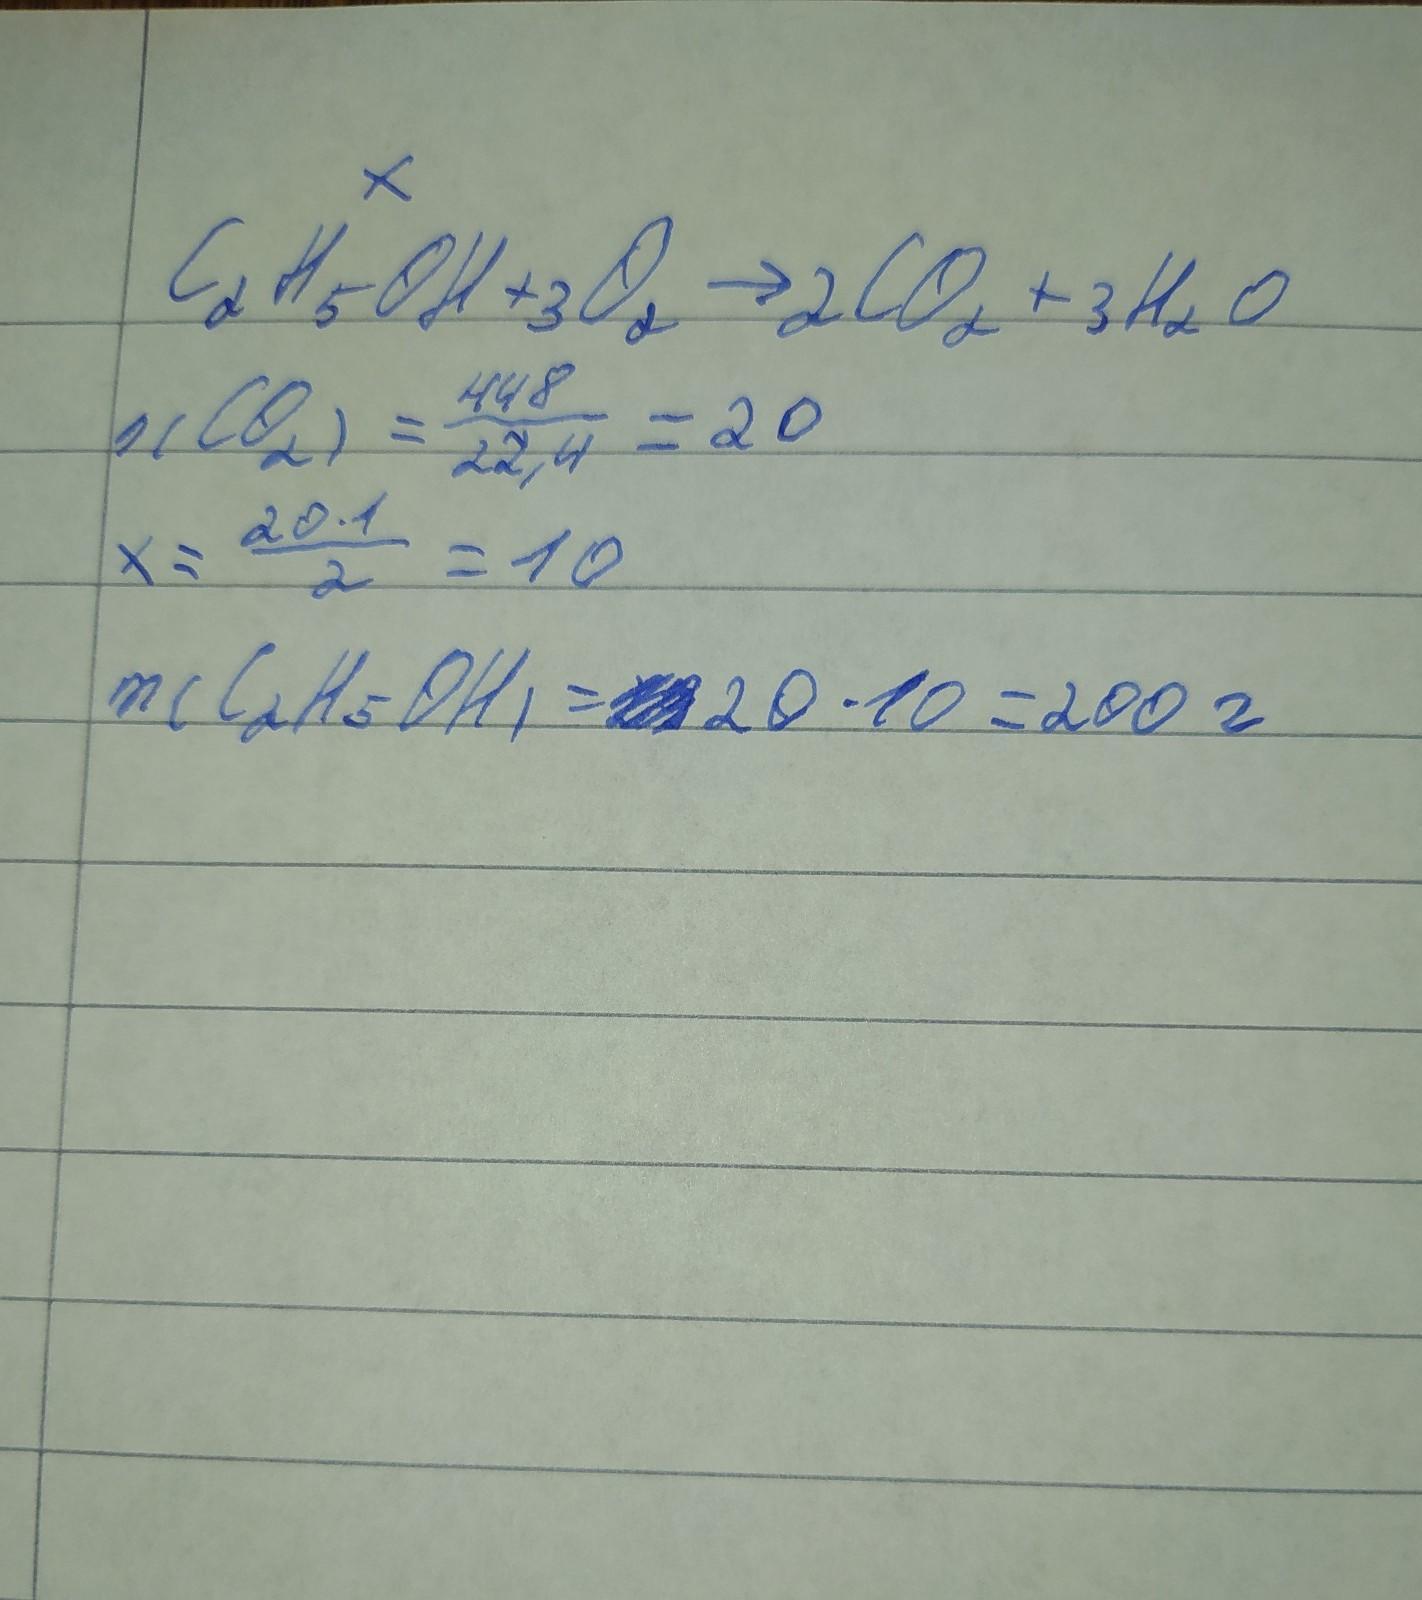 x
C₂H₅OH+3O₂→2CO₂+3H₂O
n(CO₂)=448/22,4=20
x=20·1/2=10
m(C₂H₅OH)=20·10=200г